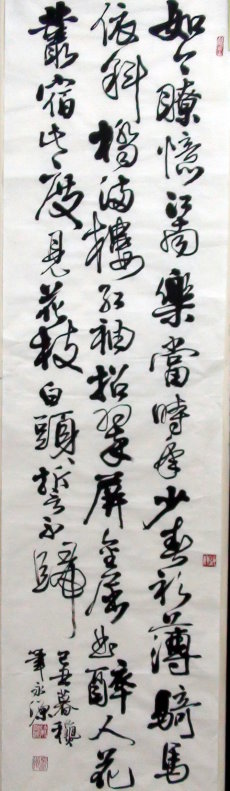 如今瞭憶江南樂當時年少春衫薄騎馬
依斜橋滿樓紅袖招翠屏金屈曲醉入花
叢宿此度見花枝白頭誓不歸
己丑暮穐